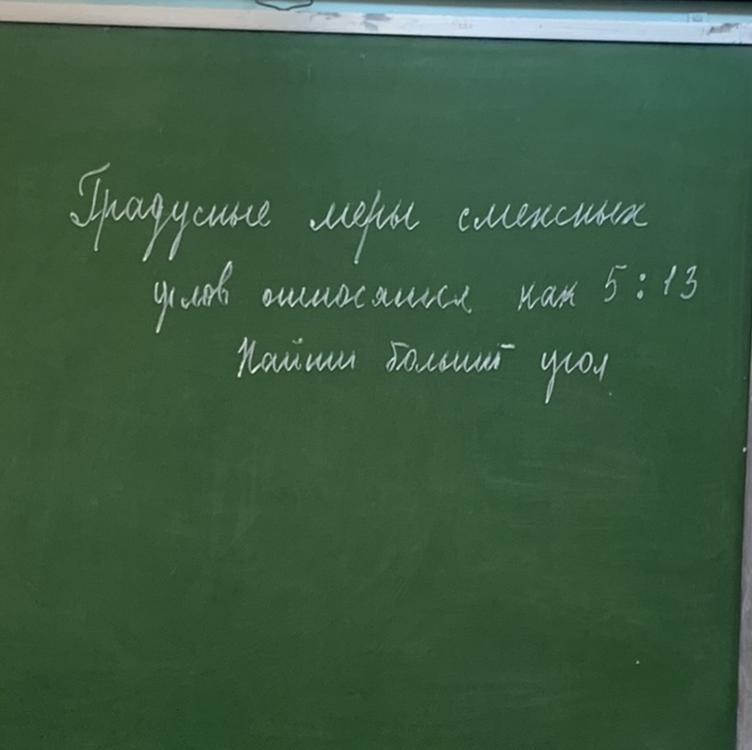 Градусные меры смежных
углов относятся как 5:13
Найти больший угол